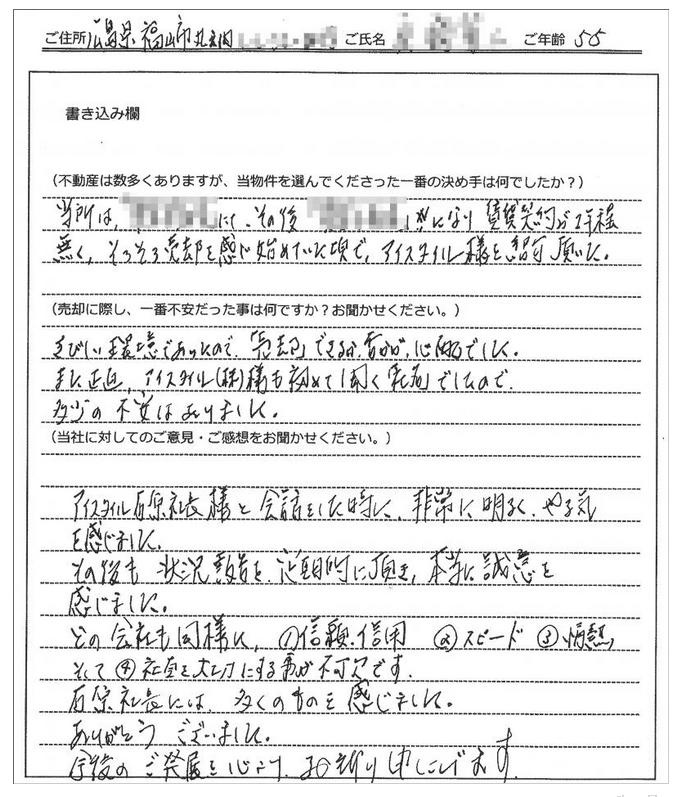 ご住所 広島県福山市 ご氏名 ご年齢 55
書き込み欄
(不動産は数多くありますが、当物件を選んでくださった一番の決め手は何でしたか?)
当所は、にて、その後 になり 賃貸契約が
無く、そろそろ売却を感じ始めていた頃で、アイスタイル様を 頂いた。
(売却に際し、一番不安だった事は何ですか?お聞かせください。)
きびしい環境であったので、「売却」できるか否かが、心配でした。
また正直、アイスタイル(株)様も初めて聞く「社名」でしたので、
多少の不安はありました。
(当社に対してのご意見・ご感想をお聞かせください。)
アイスタイル石原社長様と会話をした時に、非常に明るく、やる気
を感じました。
その後も 状況報告を、定期的に頂き、本当に誠意を
感じました。
どの会社も同様に、①信頼、信用 ②スピード ③情熱、
そして④社員を大切にする事が不可欠です。
石原社長には、多くのものを感じました。
ありがとうございました。
今後のご発展を心より、お祈り申し上げます。